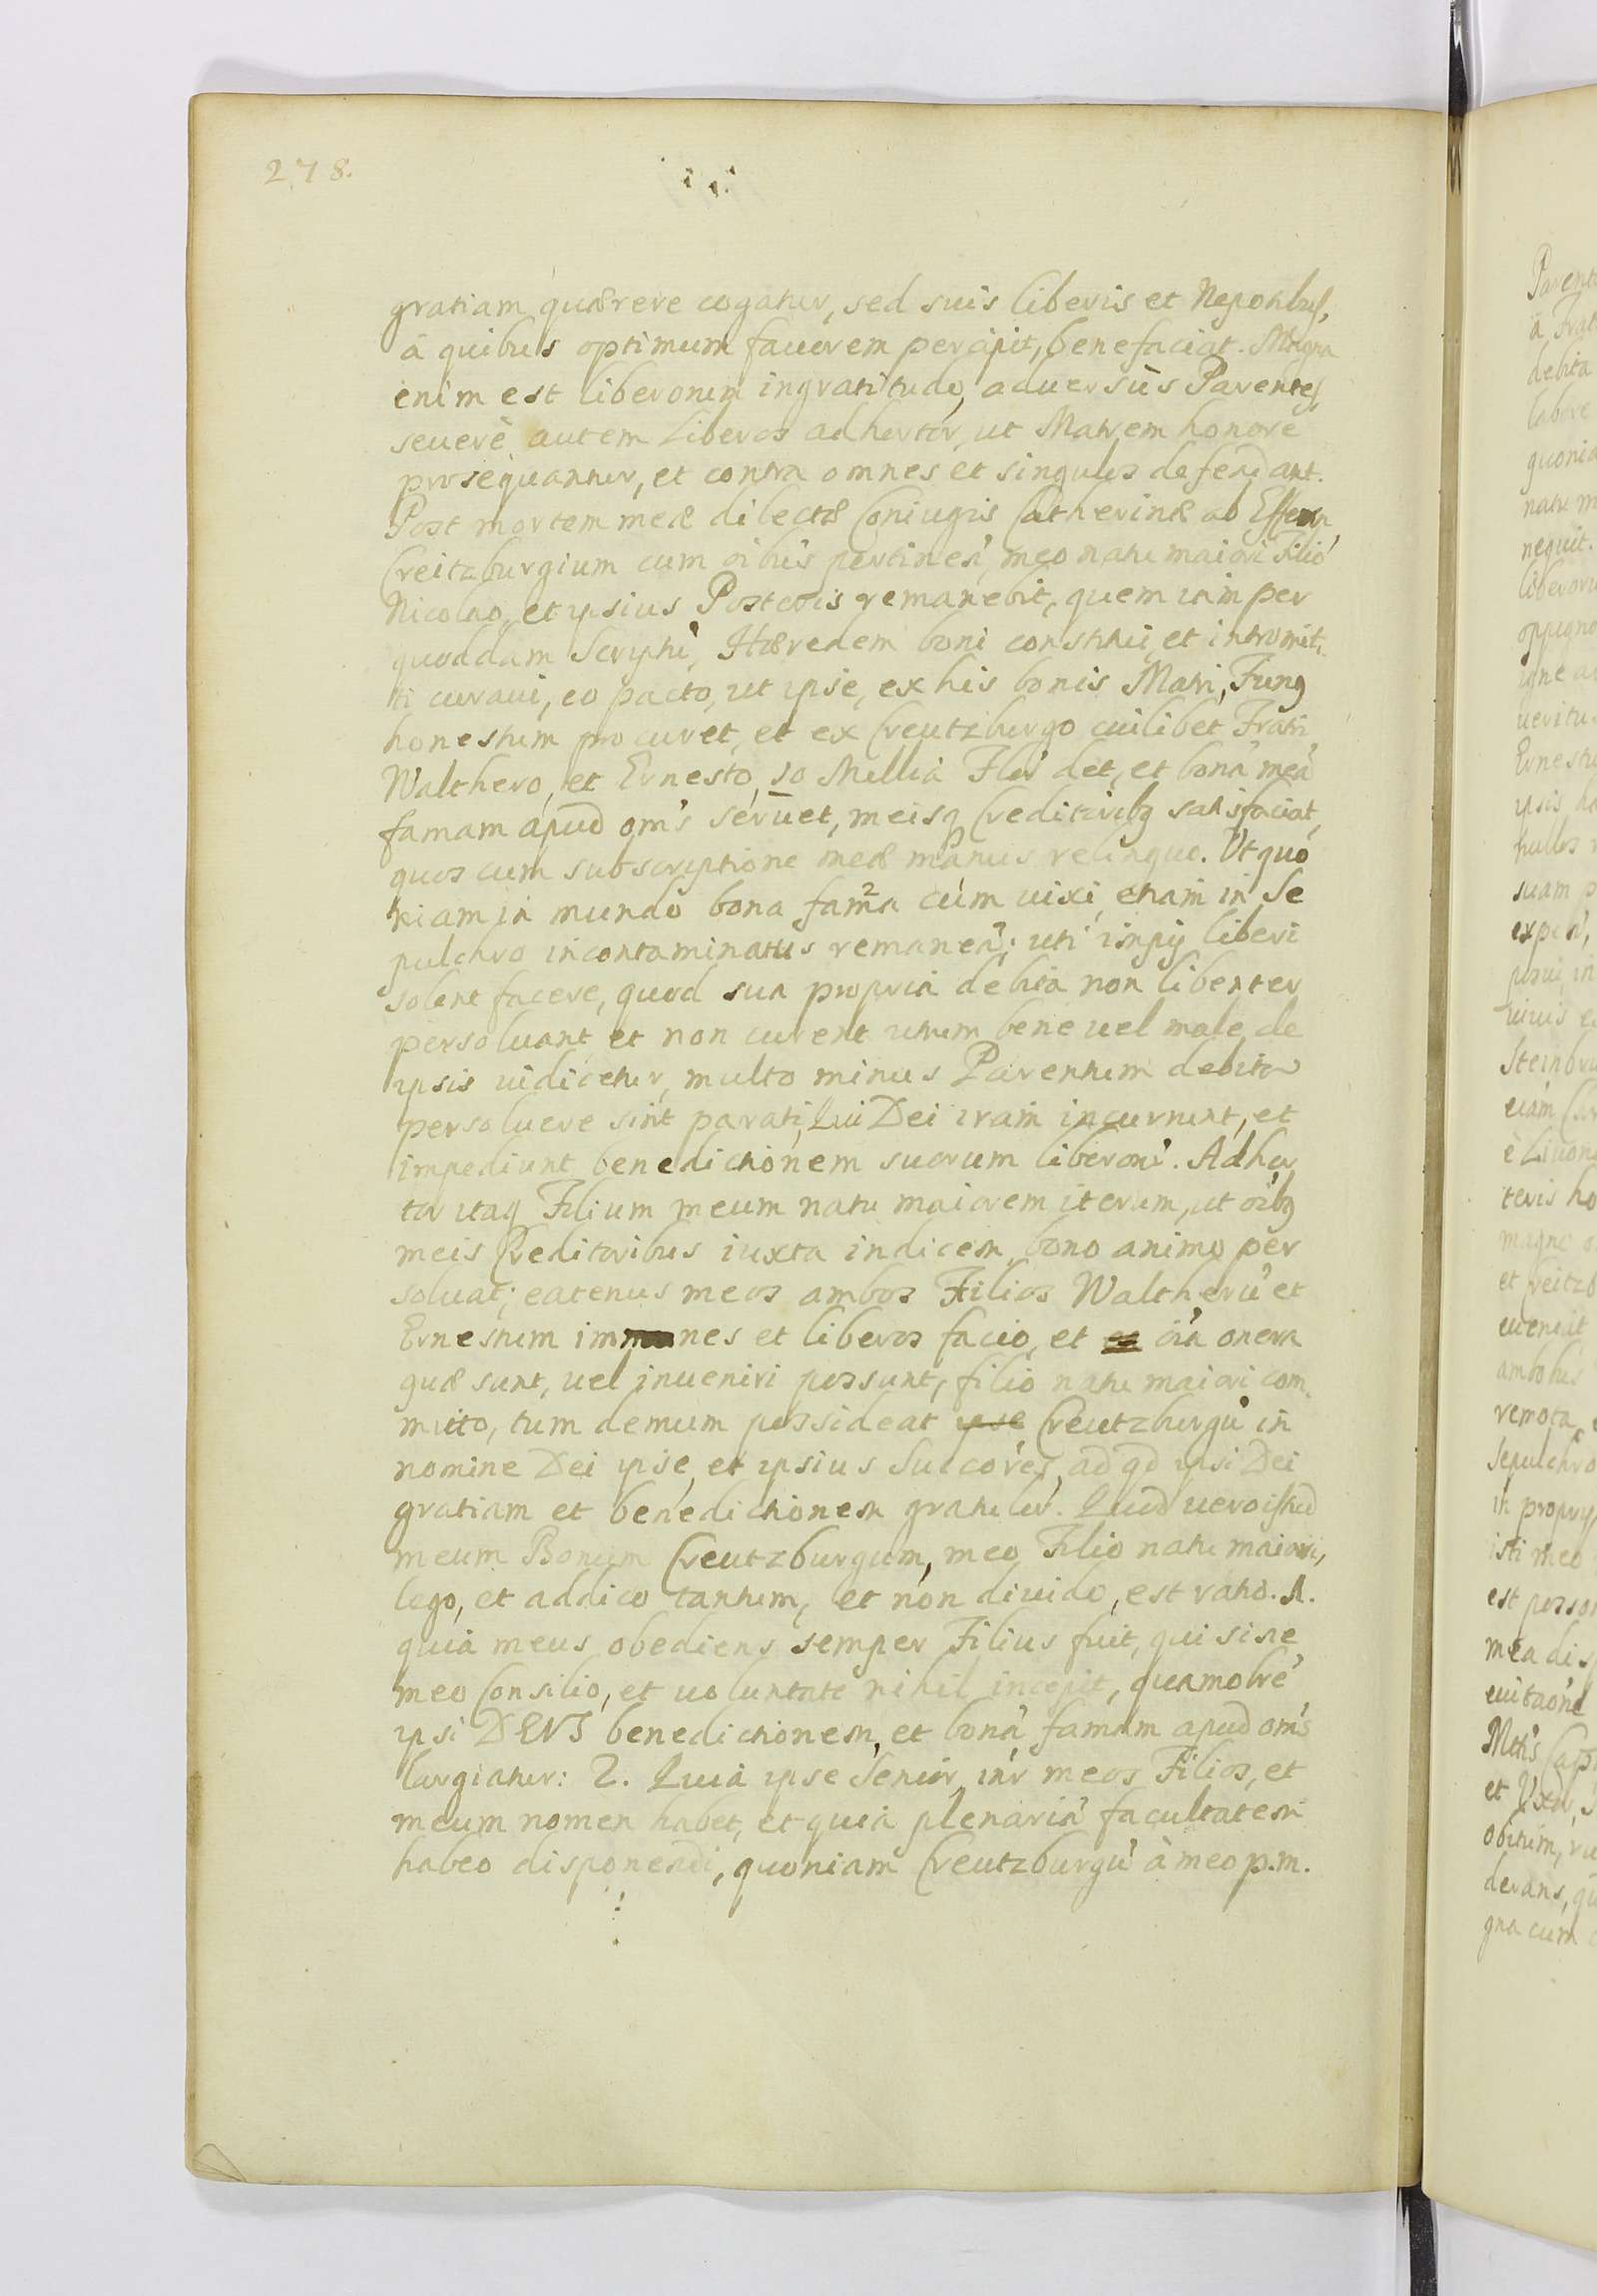 278.
gratiam quærere cogatur, sed suis liberis et Nepotibus,
à quibus optimum fauorem percipit, benefaciat. Magna
enim est liberorum ingratitudo, aduersùs Parentes,
seuerè autem Liberos adhortor, ut Matrem honore
prosequantur, et contra omnes et singulos defendant.
Post mortem meæ dilectæ Coniugis Catherinæ ab Effern
Creitzburgium cum oibus pertinen', meo natu maiori Filio
Nicolao, et ipsius Posteris remanebit, quem iam per
quoddam Scriptu', Hæredem boni constitui, et intromit-
ti curaui, eo pacto, ut ipse, ex his bonis Matri, Funus
honestum procuret, et ex Creutzburgo cuilibet Fratri
Walthero, et Ernesto, 10 Millia Flor' det, et bona' mea'
famam apud om's seruet, meisq Creditoribq satisfaciat,
quos cum subscriptione meæ manus relinquo. Ut quo
niam in mundo bona fama cùm uixi, etiam in Se
pulchro incontaminatus remanea'; uti impij liberi
solent facere, quod sua propria debita non libenter
persoluant, et non curent utrum bene uel male de
ipsis iudicetur, multo minus Parentum debita
persoluere sint parati, Qui Dei iram incurrunt, et
impediunt benedictionem suorum liberoru'. Adhor
tor itaq Filium meum natu maiorem iterum, ut oibq
meis Creditoribus iuxta indicem, bono animo per
soluat; eatenus meos ambos Filios Waltheru' et
Ernestum immunes et liberos facio, et oia onera
quæ sunt, uel inueniri possunt, filio natu maiori com-
mitto, tum demum possideat ipse Creutzburgu' in
nomine Dei ipse, et ipsius Succores, ad qd ipsi Dei
gratiam et benedictionem gratulor. Quod uero istud
meum Bonum Creutzburgum, meo Filio natu maiori,
lego, et addico tantum, et non diuido, est ratio. 1.
quia meus obediens semper Filius fuit, qui sine
meo Consilio, et uoluntate nihil incepit, quamobre'
ipsi DEUS benedictionem, et bona' famam apud om's
largiatur: 2. Quia ipse Senior int'r meos Filios, et
meum nomen habet, et quia plenaria' facultatem
habeo disponendi, quoniam Creutzburgu' à meo p.m.